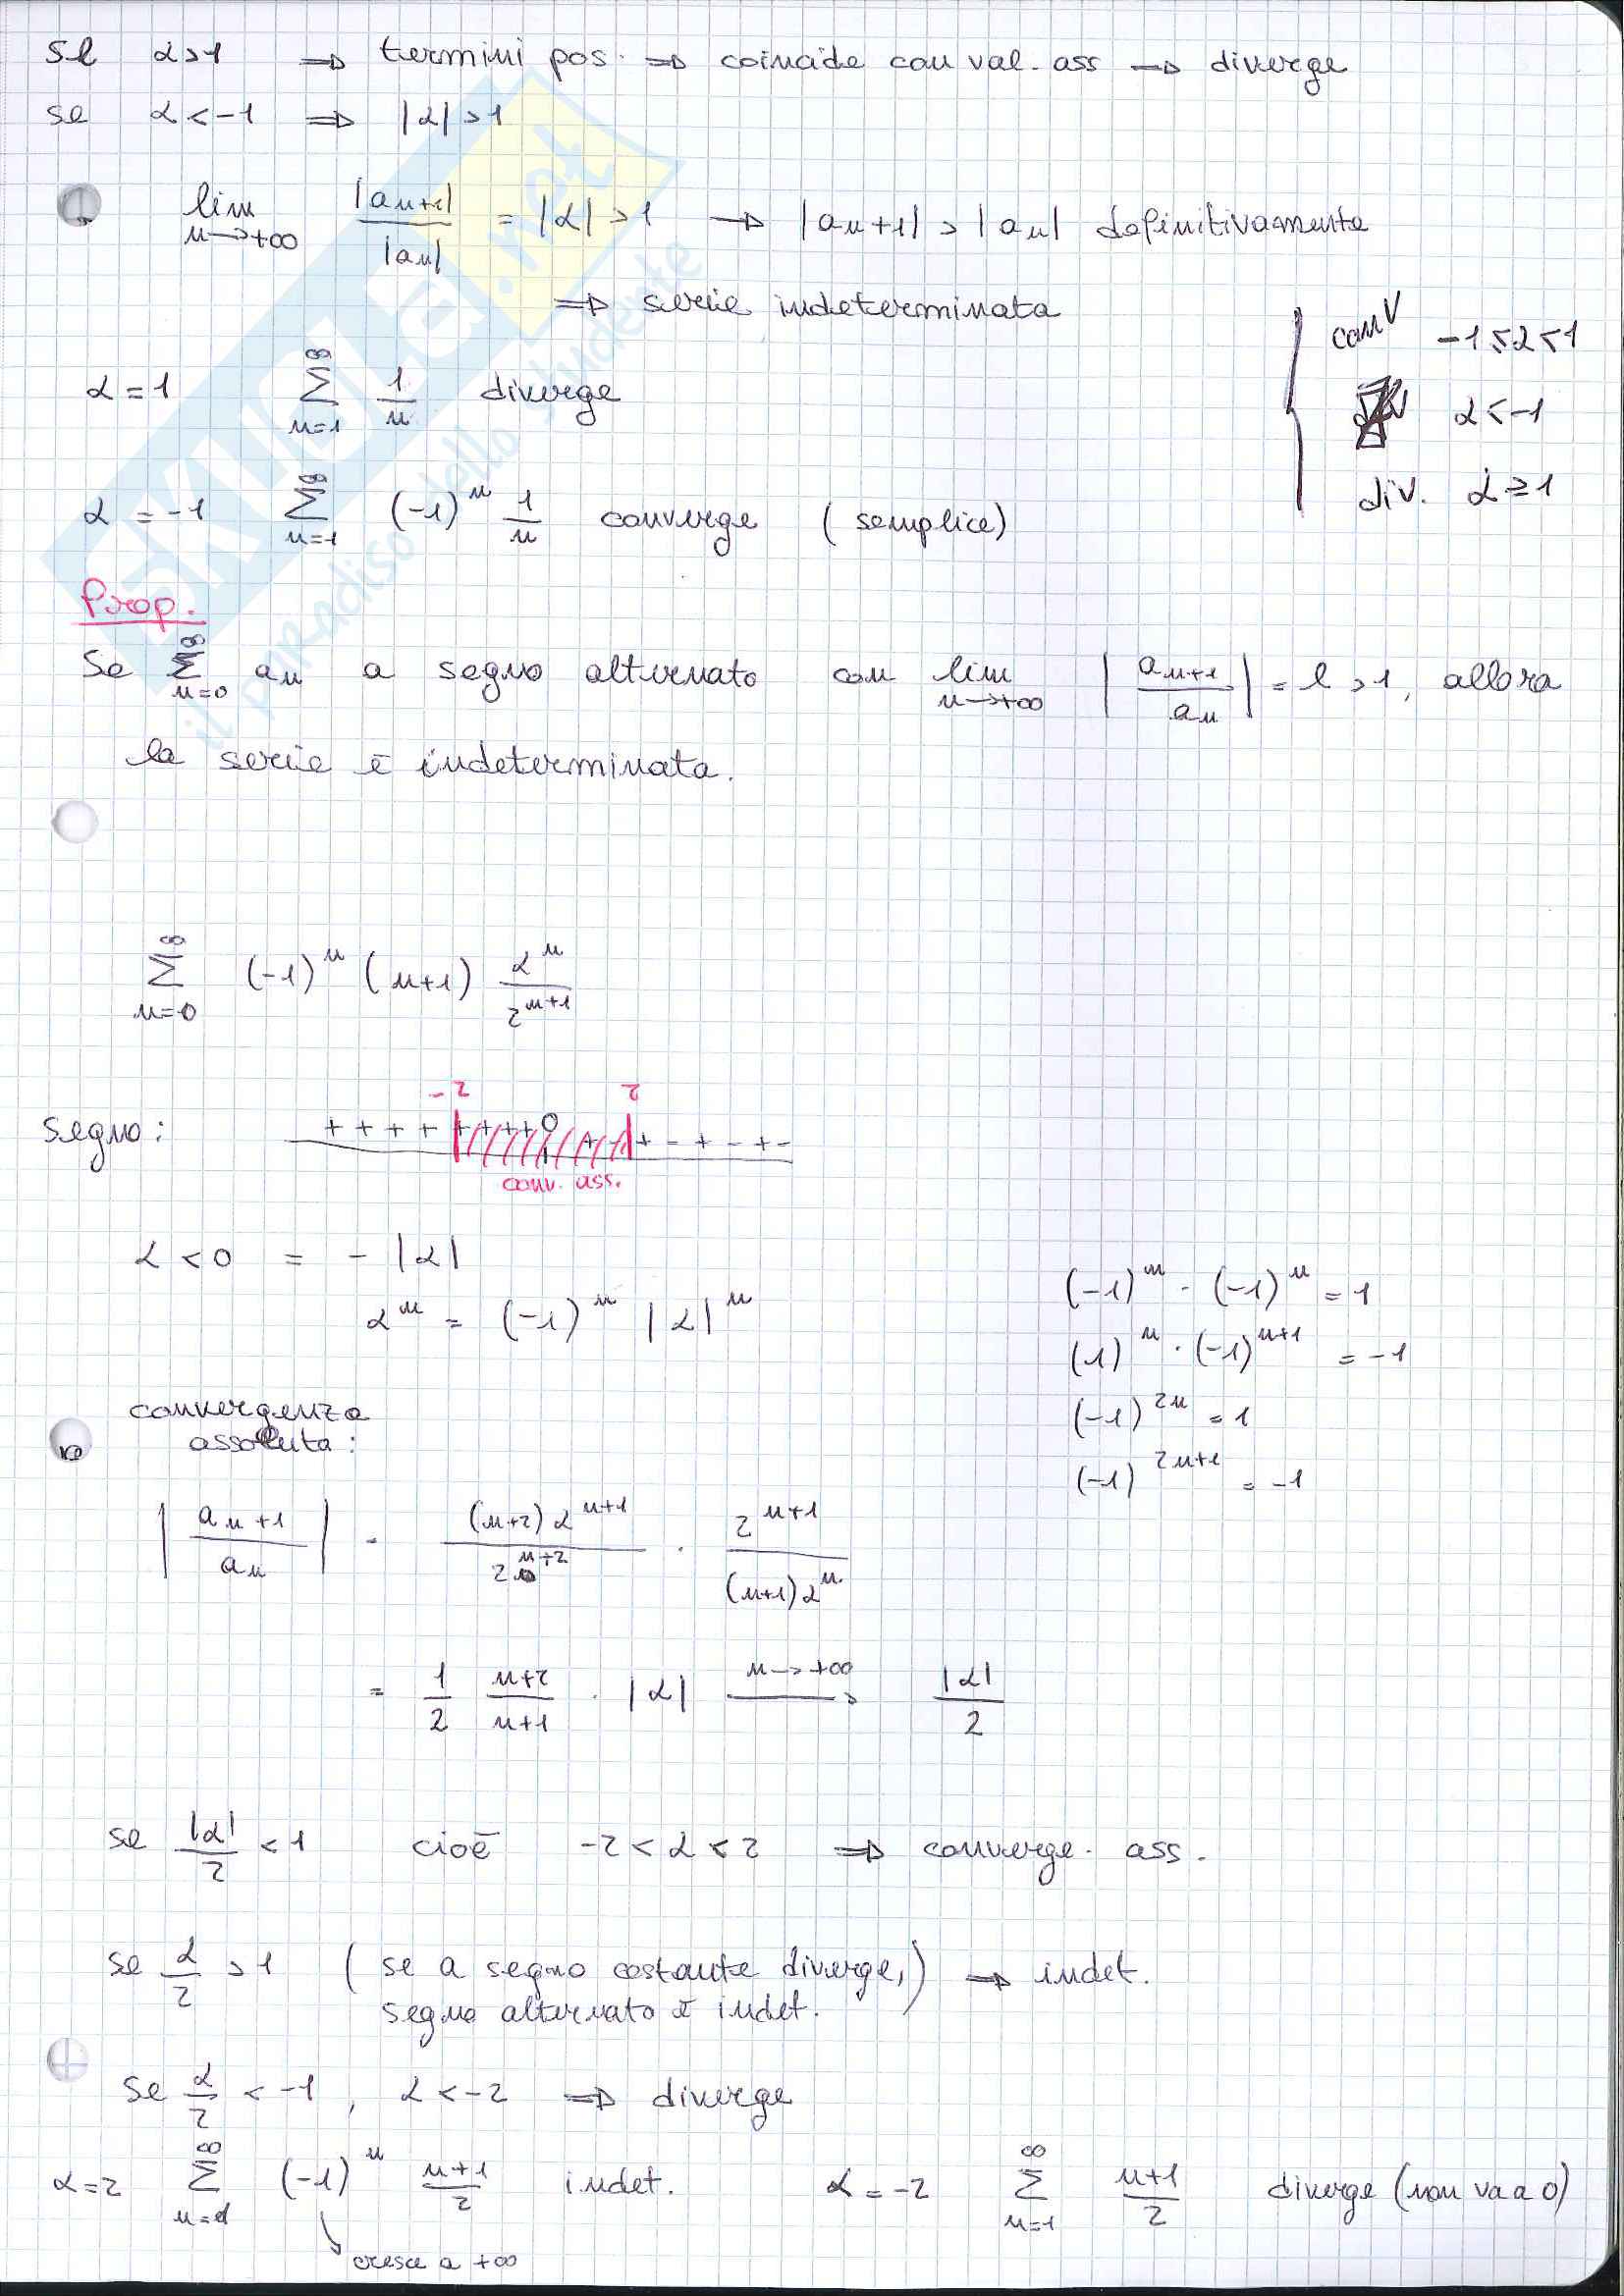 se α>1 ⇒ termini pos. ⇒ coincide con val. ass → diverge
se α<-1 ⇒ |α|>1
lim n→+∞ |an+1|/|an| = |α|>1 → |an+1|>|an| definitivamente
⇒ serie indeterminata
conv -1≤α<1
α=1 ∑ n=1 ∞ 1/n diverge
α<-1
div. α≥1
α=-1 ∑ n=1 ∞ (-1)^n 1/n converge (semplice)
Prop.
Se ∑ n=0 ∞ an a segno alternato con lim n→+∞ |an+1/an| = l >1, allora
la serie è indeterminata.
∑ n=0 ∞ (-1)^n (n+1) α^n/2^(n+1)
-2 2
segno: + + + + + + + + 0 + - + - + - + -
conv. ass.
α<0 = -|α|
(-1)^n · (-1)^n = 1
α^n = (-1)^n |α|^n
(1)^n · (-1)^(n+1) = -1
(-1)^2n = 1
convergenza
assoluta:
(-1)^(2n+1) = -1
|an+1/an| = (n+2)α^(n+1)/2^(n+2) · 2^(n+1)/(n+1)α^n
= 1/2 n+2/n+1 · |α| n→+∞ → |α|/2
se |α|/2 < 1 cioè -2<α<2 ⇒ converge. ass.
se α/2 >1 (se a segno costante diverge,) ⇒ indet.
segno alternato è indet.
se α/2 < -1, α<-2 ⇒ diverge
α=2 ∑ (-1)^n n+1/2 indet. α=-2 ∑ n=1 ∞ n+1/2 diverge (non va a 0)
cresce a +∞
SKUOLA.net
il paradiso dello studente